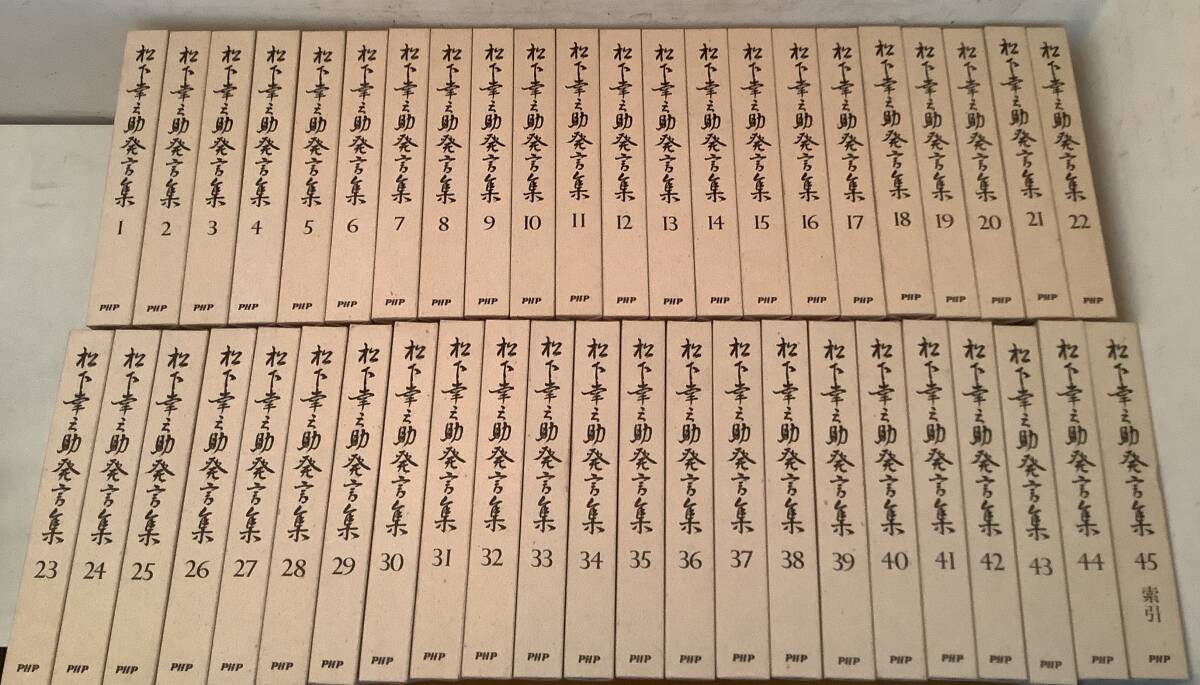 松下幸之助発言集 1 PHP
松下幸之助発言集 2 PHP
松下幸之助発言集 3 PHP
松下幸之助発言集 4 PHP
松下幸之助発言集 5 PHP
松下幸之助発言集 6 PHP
松下幸之助発言集 7 PHP
松下幸之助発言集 8 PHP
松下幸之助発言集 9 PHP
松下幸之助発言集 10 PHP
松下幸之助発言集 11 PHP
松下幸之助発言集 12 PHP
松下幸之助発言集 13 PHP
松下幸之助発言集 14 PHP
松下幸之助発言集 15 PHP
松下幸之助発言集 16 PHP
松下幸之助発言集 17 PHP
松下幸之助発言集 18 PHP
松下幸之助発言集 19 PHP
松下幸之助発言集 20 PHP
松下幸之助発言集 21 PHP
松下幸之助発言集 22 PHP
松下幸之助発言集 23 PHP
松下幸之助発言集 24 PHP
松下幸之助発言集 25 PHP
松下幸之助発言集 26 PHP
松下幸之助発言集 27 PHP
松下幸之助発言集 28 PHP
松下幸之助発言集 29 PHP
松下幸之助発言集 30 PHP
松下幸之助発言集 31 PHP
松下幸之助発言集 32 PHP
松下幸之助発言集 33 PHP
松下幸之助発言集 34 PHP
松下幸之助発言集 35 PHP
松下幸之助発言集 36 PHP
松下幸之助発言集 37 PHP
松下幸之助発言集 38 PHP
松下幸之助発言集 39 PHP
松下幸之助発言集 40 PHP
松下幸之助発言集 41 PHP
松下幸之助発言集 42 PHP
松下幸之助発言集 43 PHP
松下幸之助発言集 44 PHP
松下幸之助発言集 45 索引 PHP